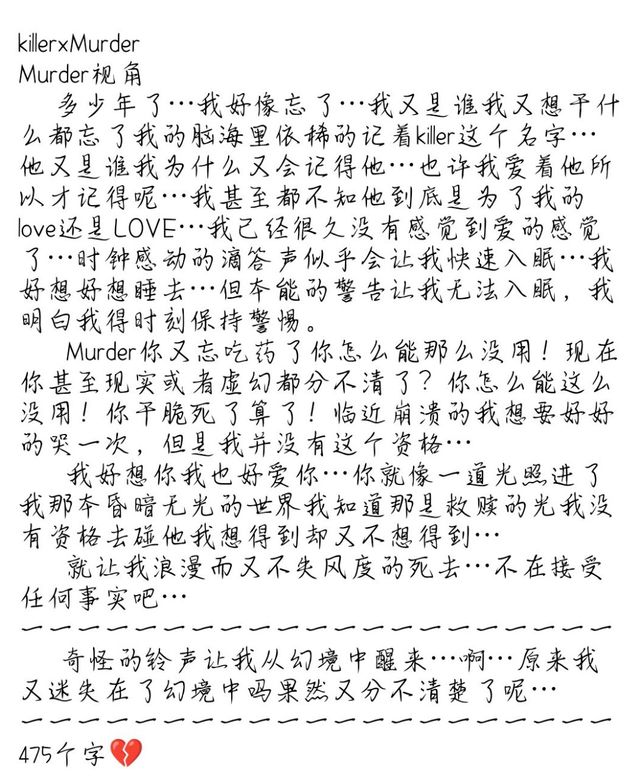 killerxMurder
Murder视角
多少年了…我好像忘了…我又是谁我又想干什
么都忘了我的脑海里依稀的记着killer这个名字…
他又是谁我为什么又会记得他…也许我爱着他所
以才记得呢…我甚至都不知他到底是为了我的
love还是LOVE…我已经很久没有感觉到爱的感觉
了…时钟感动的滴答声似乎会让我快速入眠…我
好想好想睡去…但本能的警告让我无法入眠，我
明白我得时刻保持警惕。
Murder你又忘吃药了你怎么能那么没用！现在
你甚至现实或者虚幻都分不清了？你怎么能这么
没用！你干脆死了算了！临近崩溃的我想要好好
的哭一次，但是我并没有这个资格…
我好想你我也好爱你…你就像一道光照进了
我那本昏暗无光的世界我知道那是救赎的光我没
有资格去碰他我想得到却又不想得到…
就让我浪漫而又不失风度的死去…不在接受
任何事实吧…
一一一一一一一一一一一一一一一一一一一一一
奇怪的铃声让我从幻境中醒来…啊…原来我
又迷失在了幻境中吗果然又分不清楚了呢…
一一一一一一一一一一一一一一一一一一一一一
475个字💔